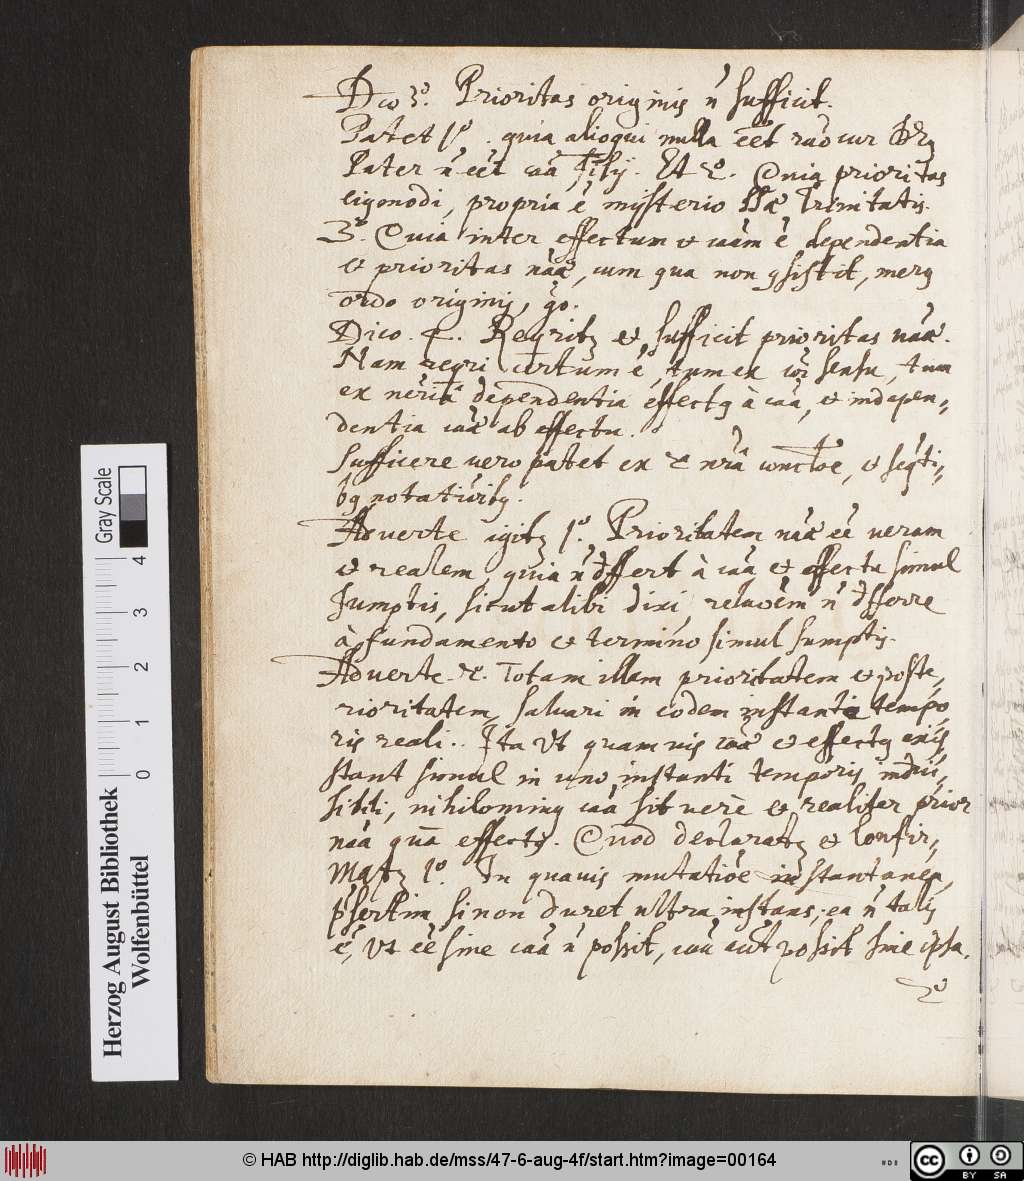 Dico 3º. Prioritas originis n̄ sufficit.
Patet 1º. quia alioqui nulla eēt rāo cur
Pater n̄ eēt cāa filij. Et 2º. Quia prioritas
eigsmodi, propria ē mysterio SSæ Trinitatis.
3º. Quia inter effectum et cāam ē dependentia
et prioritas nāæ, cum qua non gsistit, merg
ordo originis, go.
Dico. 4. Reqrit & sufficit prioritas nāæ.
Nam reqri certum ē, tum ex coī sensu, tum
ex dependentia effectg à cāa, et indepen„
dentia cāæ ab effectu.
Sufficere vero patet ex 2 nrā conctoe, et seqti„
bg notatioibg.
Adverte igit 1º. Prioritatem nāæ eē veram
et realem, quia n̄ dffert à cāa et effectu simul
sumptis, sicut alibi dixi relaōēm n̄ dfferre
à fundamento et termino simul sumptis.
Adverte 2º. Totam illam prioritatem et poste„
rioritatem, salvari in eodem instanti tempo
ris reali.. Ita ut quamvis cāa et effectg exis„
stant simul in uno instanti temporis indivi„
sibili, nihiloming cāa sit verè et realiter prior
nāa quā effectg. Quod declarat & Confir„
mat 1º. In quavis mutatiōe instantanea,
pſertim si non duret ultra instans; ea n̄ talis
ē, ut eē sine cāa n̄ possit, cāa aūt possit sine ipsa.
2º
Herzog August Bibliothek
Wolfenbüttel
Gray Scale
0 1 2 3 4
© HAB http://diglib.hab.de/mss/47-6-aug-4f/start.htm?image=00164
cc BY SA